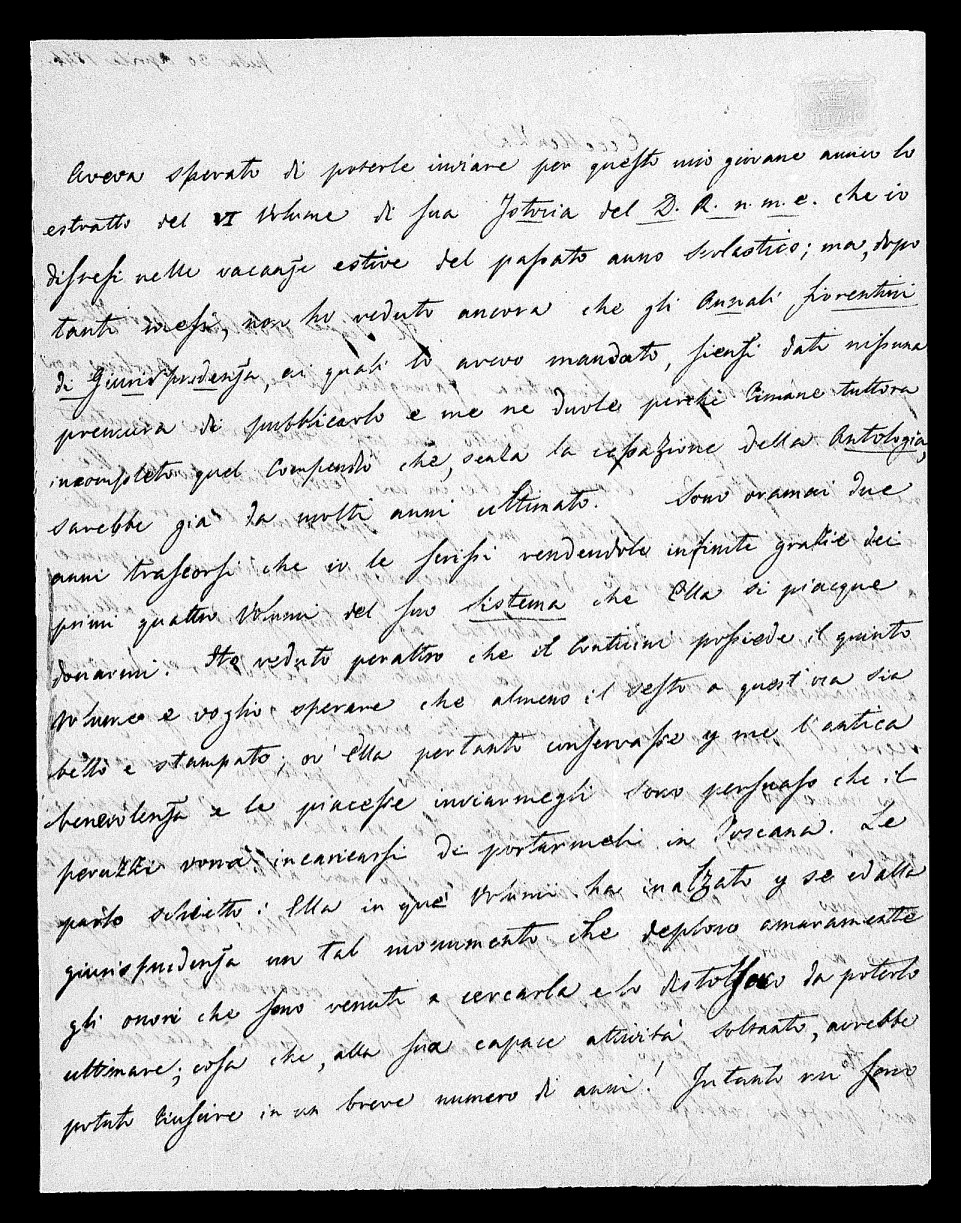 Aveva sperato di poterle inviare per questo mio giovane amico lo
estratto del VI Volume di sua Istoria del D. R. n. m. e. che io
distesi nelle vacanze estive del passato anno scolastico; ma, dopo
tanti mesi, non ho veduto ancora che gli Annali fiorentini
di Giurisprudenza, ai quali lo avevo mandato, siensi dati nissuna
premura di pubblicarlo e me ne duole perchè rimane tuttora
incompleto quel Compendio che, senza la cessazione della Antologia,
sarebbe già da molti anni ultimato. Sono oramai due
anni trascorsi che io le scrissi rendendole infinite grazie dei
primi quattro Volumi del suo Sistema che Ella si piacque
donarmi. Ho veduto peraltro che il Conticini possiede il quinto
Volume e voglio sperare che almeno il sesto a quest'ora sia
bell'e stampato; ov'Ella pertanto conservasse p me l'antica
benevolenza e le piacesse inviarmegli sono persuaso che il
Peruzzi vorrà incaricarsi di portarmeli in Toscana. Le
parlo schietto: Ella in que' Volumi ha inalzato p se ed alla
giurisprudenza un tal monumento che deploro amaramente
gli onori che sono venuti a cercarla e lo distolsero da poterlo
ultimare; cosa che, alla sua capace attività soltanto, avrebbe
potuto riuscire in un breve numero di anni! Intanto mi sono